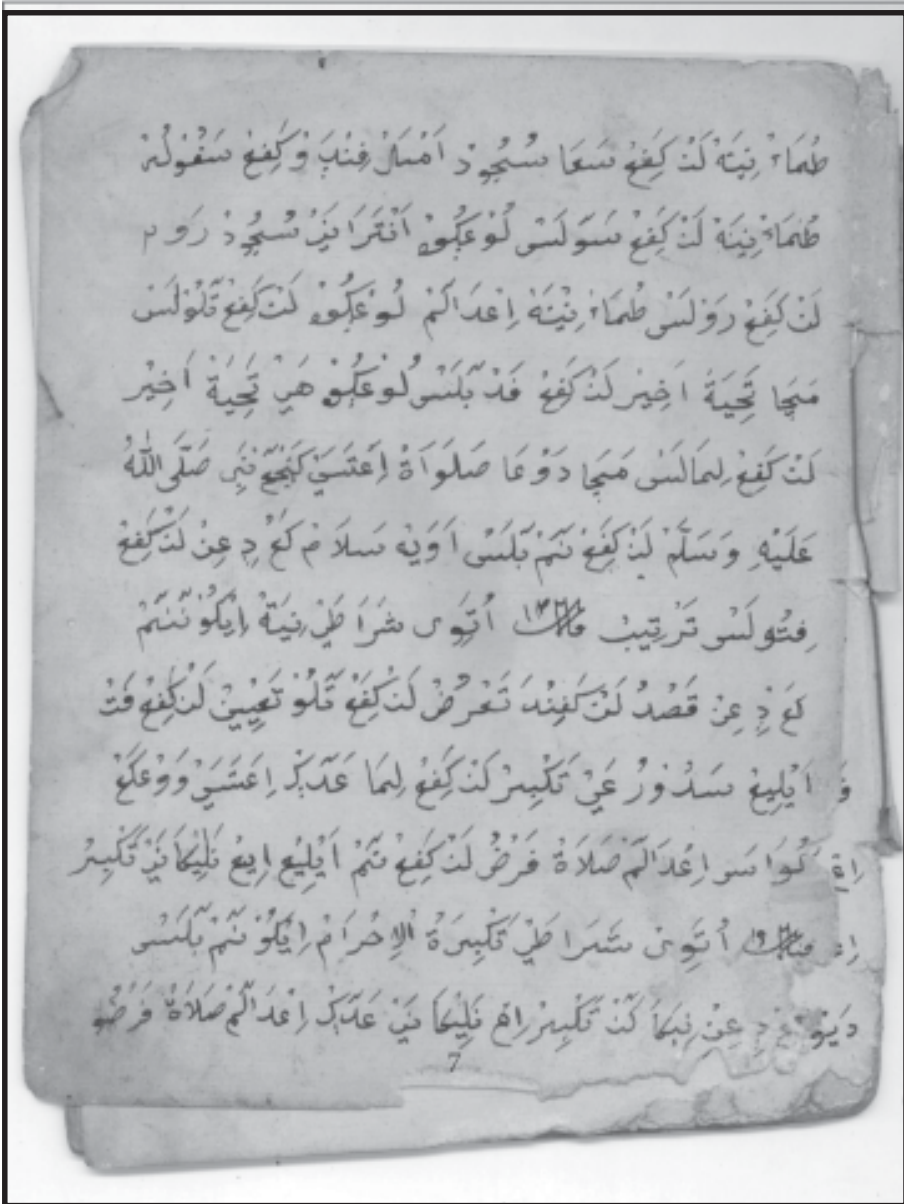 طُمَاءْنِيْنَةْ لَنْ كَفِڠْ سَعَا سُجُوْدْ اَمْبَلْ فِنْدَ وْ كَفِڠْ سَفُوْلُهْ
طُمَاءْنِيْنَةْ لَنْ كَفِڠْ سَوَلَسْ لُوْڠْكُوْهْ اَنْتَرَانَيْ سُجُوْدْ رَوْ
لَنْ كَفِڠْ رَوْلَسْ طُمَاءْنِيْنَةْ اِڠْدَالَمْ لُوْڠْكُوْهْ لَنْ كَفِڠْ تَلُوْلَسْ
مَچَا تَحِيَةْ اَخِيْر لَنْ كَفِڠْ فَدْبَلَسْ لُوْڠْكُوْهْ هَيْ تَحِيَةْ اَخِيْر
لَنْ كَفِڠْ لِيمَالَسْ مَچَا دَوْعَا صَلَوَاةْ اِڠَتَسَيْ كَنْجَڠْ نَبِي صَلَّى اللهُ
عَلَيْهِ وَسَلَّمْ لَنْ كَفِڠْ نَمْ بَلَسْ اَوَيْهْ سَلَامْ كَڠْ دِڠِنْ لَنْ كَفِڠْ
فِتُوْلَسْ تَرْتِيْبْ اُتَوِى شَرَاطَيْ نِيَةْ اِيْكُوْ نَنَمْ
كَڠْ دِڠِنْ قَصْدُ لَنْ كَفِنْدَ تَعَرُّضْ لَنْ كَفِڠْ تَلُوْ تَعْيِيْنْ لَنْ كَفِڠْ فَتْ
اَيْلِيْڠْ سَدُوْرُڠَيْ تَكْبِيْرْ لَنْ كَفِڠْ لِيمَا عَدَكْ اِڠَتَسَيْ وَوْڠْكَڠْ
كُوَاسَ اِڠْدَالَمْ صَلَاةْ فَرْضُ لَنْ كَفِڠْ نَمْ اَيْلِيْڠْ اِيْڠْ نَلِيْكَانَيْ تَكْبِيْرْ
اُتَوِىْ شَرَاطَيْ تَكْبِيْرَةُ الْاِحْرَامْ اِيْكُوْ نَمْ بَلَسْ
دِڠِنْ تَكْبِيْرْ اِڠْ نَلِيْكَانَيْ عَدَكْ اِڠْدَالَمْ صَلَاةْ فَرْضُو
7